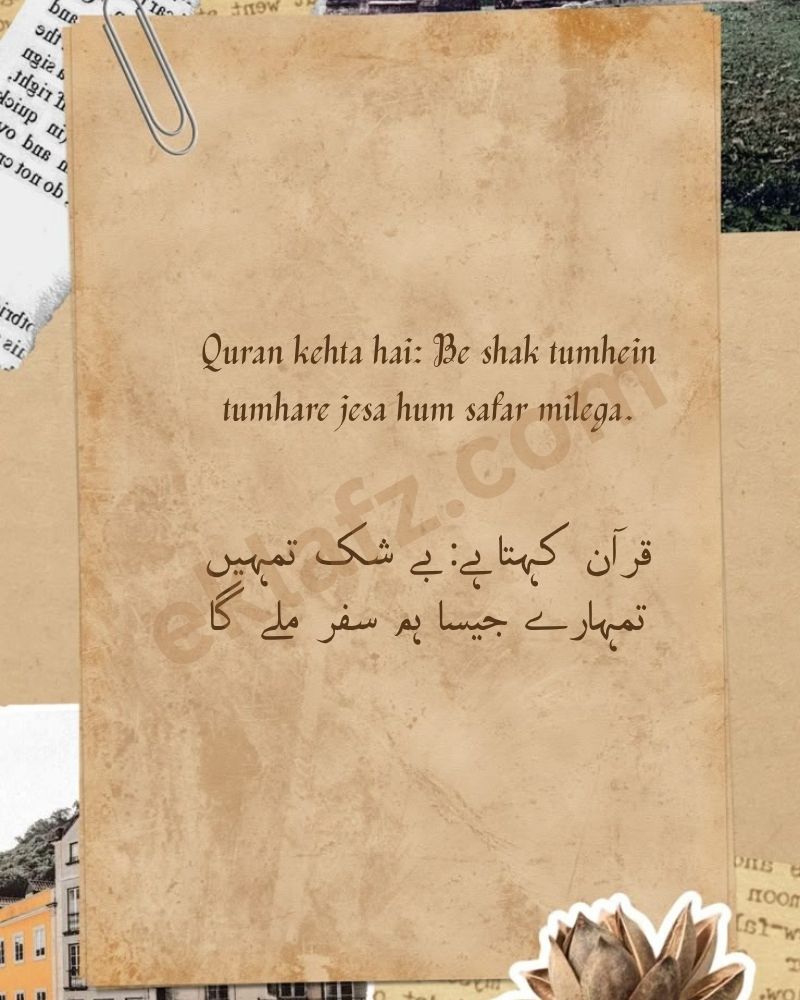 Quran kehta hai: Be shak tumhein
tumhare jesa hum safar milega.
eklafz.com
قرآن کہتا ہے: بے شک تمہیں
تمہارے جیسا ہم سفر ملے گا